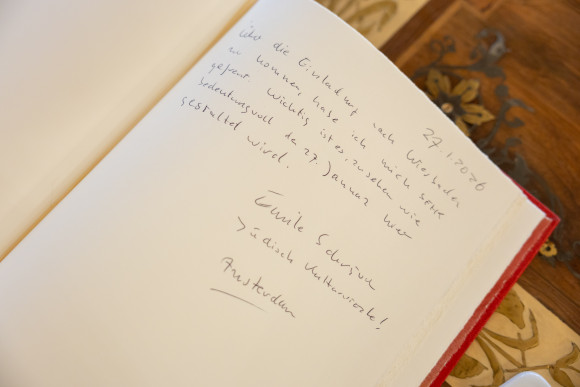 27.1.2026
Über die Einladung nach Wiesbaden
zu kommen, habe ich mich sehr
gefreut. Wichtig ist es, zu sehen wie
bedeutungsvoll der 27. Januar hier
gestaltet wird.
Emile Schrijver
Jüdisch Kulturviertel
Amsterdam